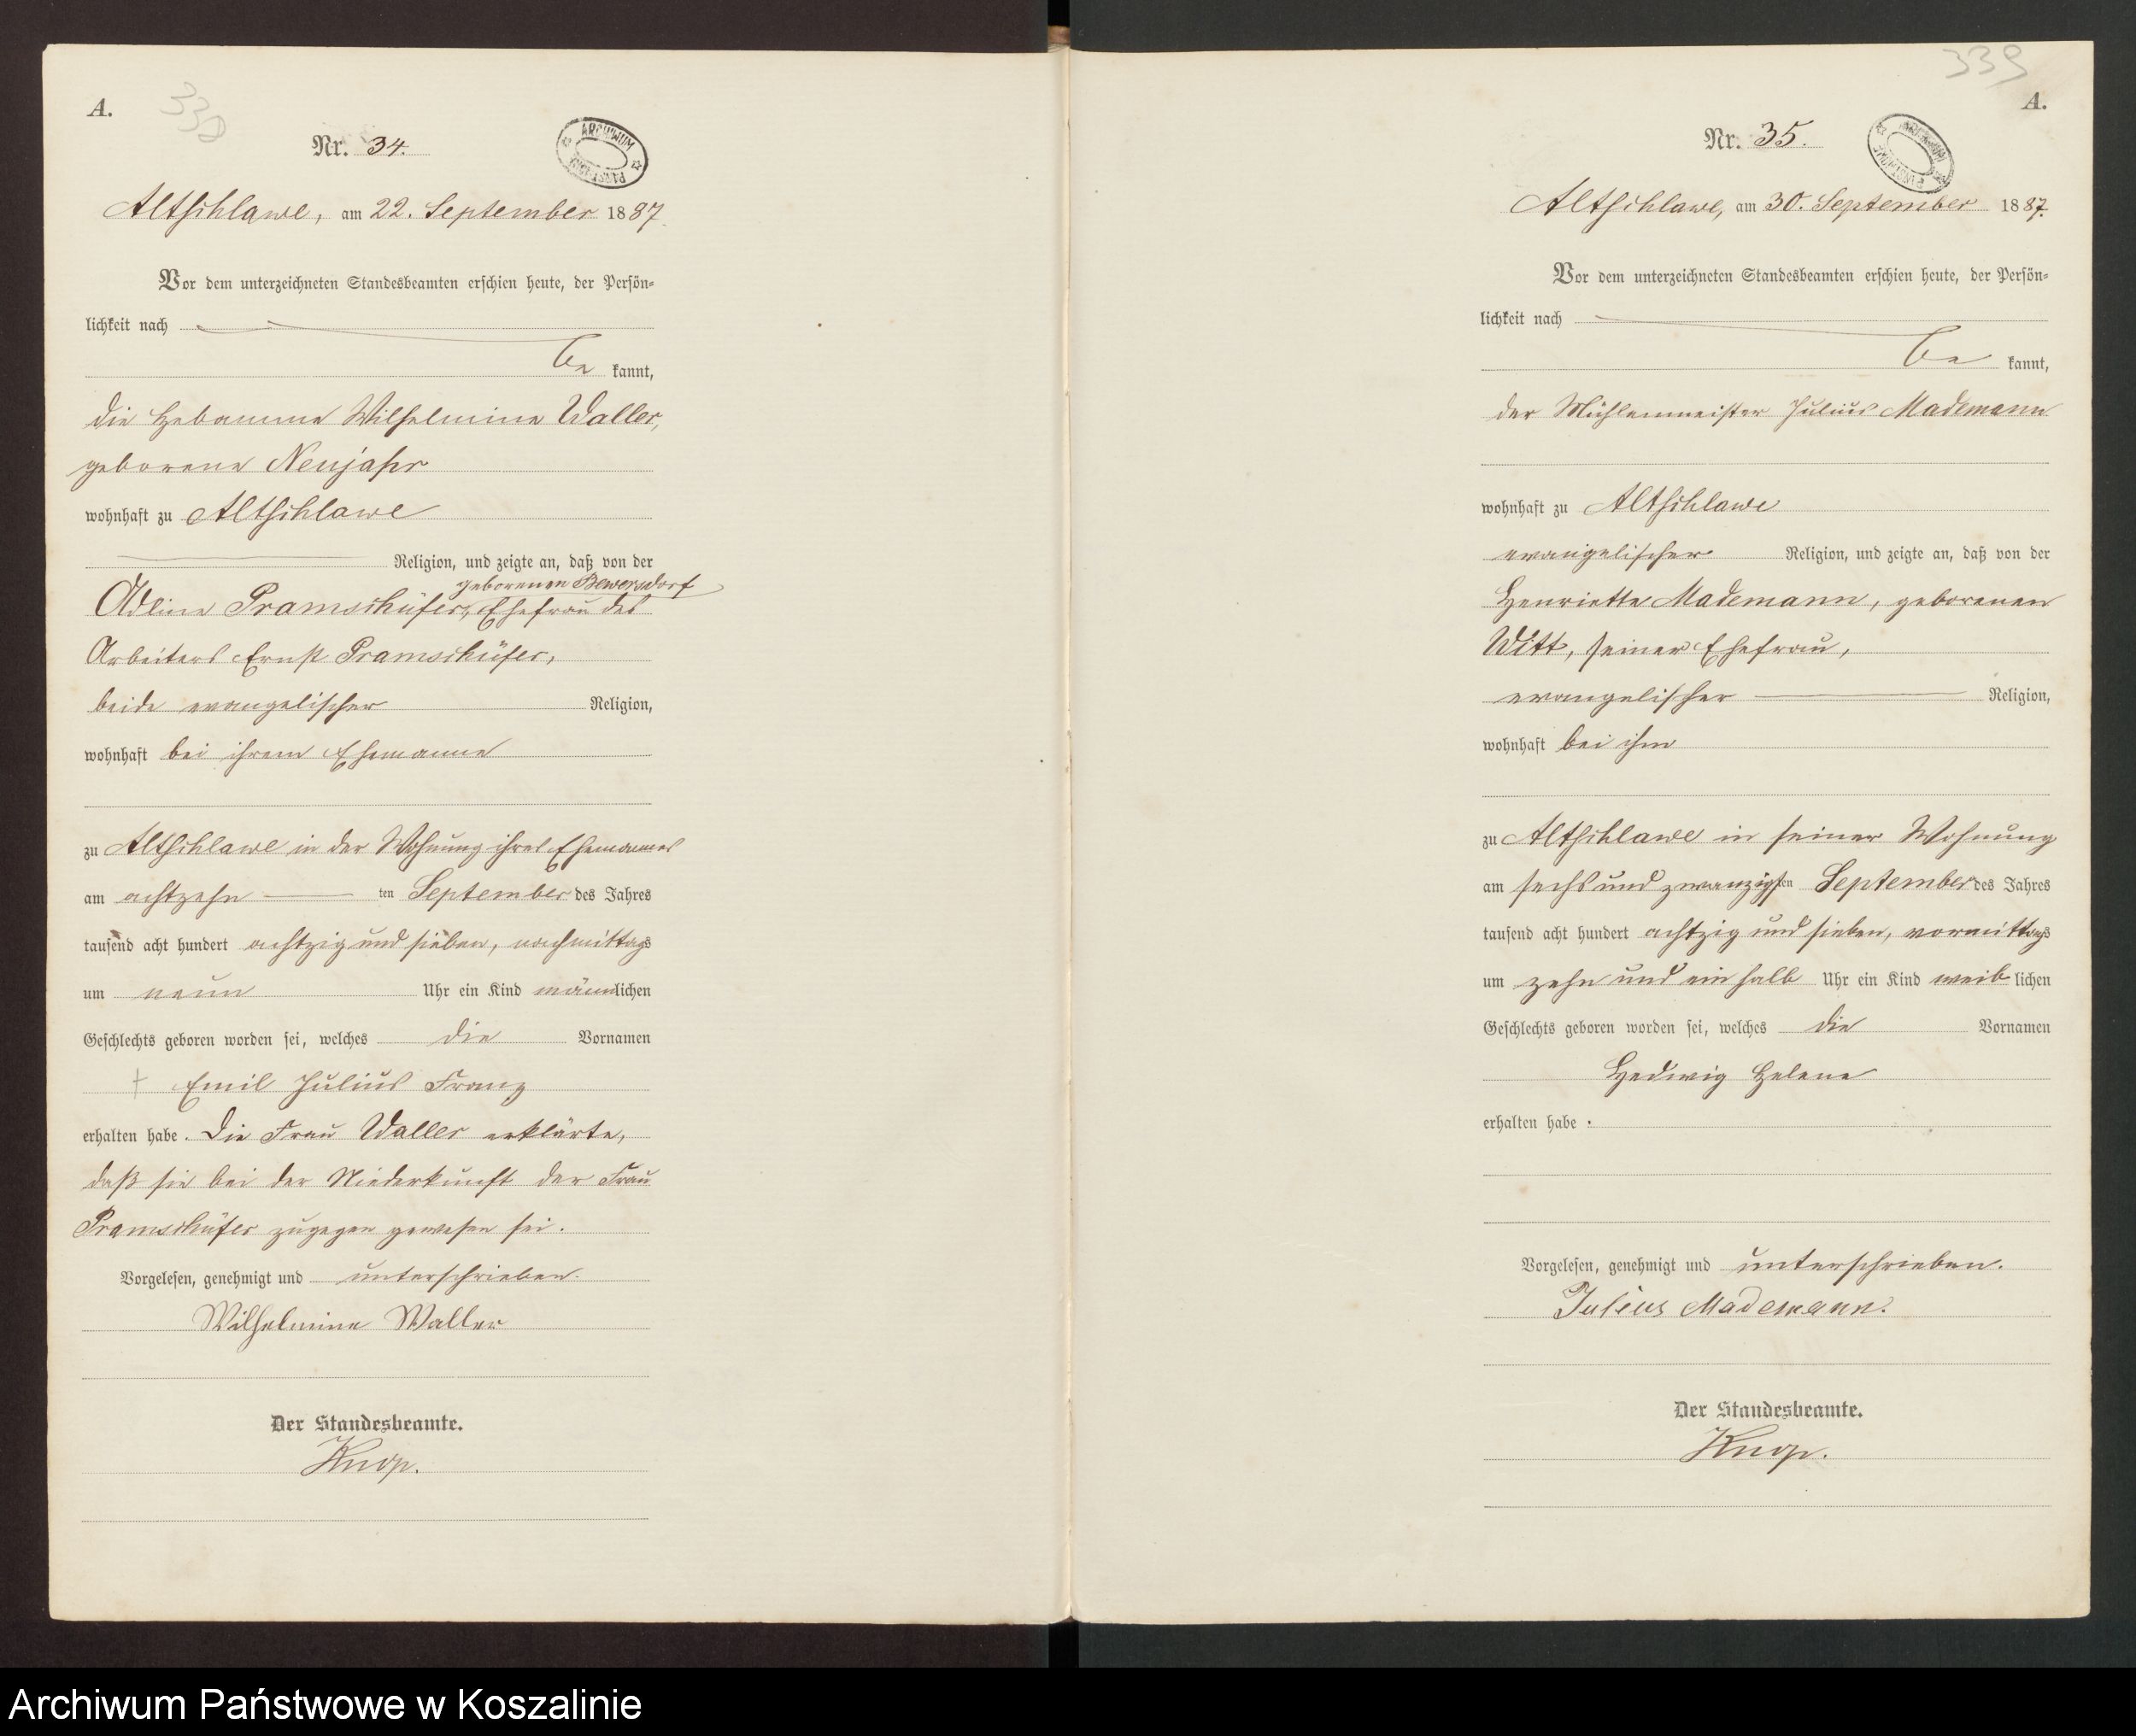 A.
338
Nr. 34.
ARCHIWUM PAŃSTWOWE
Altschlawe, am 22. September 1887.
Vor dem unterzeichneten Standesbeamten erschien heute, der Persön=
lichkeit nach
be kannt,
die Hebamme Wilhelmine Waller,
geborene Neujahr
wohnhaft zu Altschlawe
Religion, und zeigte an, daß von der
geborenen Bewersdorf
Adline Pramschüfer, Ehefrau des
Arbeiters Ernst Pramschüfer,
beide evangelischer Religion,
wohnhaft bei ihrem Ehemanne
zu Altschlawe in der Wohnung ihres Ehemannes
am achtzehn ten September des Jahres
tausend acht hundert achtzig und sieben, nachmittags
um neun Uhr ein Kind männlichen
Geschlechts geboren worden sei, welches die Vornamen
† Emil Julius Franz
erhalten habe. Die Frau Waller erklärte,
daß sie bei der Niederkunft der Frau
Pramschüfer zugegen gewesen sei.
Vorgelesen, genehmigt und unterschrieben.
Wilhelmine Waller
Der Standesbeamte.
Knop.
339
A.
Nr. 35.
ARCHIWUM PAŃSTWOWE
Altschlawe, am 30. September 1887.
Vor dem unterzeichneten Standesbeamten erschien heute, der Persön=
lichkeit nach
be kannt,
der Mühlenmeister Julius Mademann
wohnhaft zu Altschlawe
evangelischer Religion, und zeigte an, daß von der
Henriette Mademann, geborenen
Witt, seiner Ehefrau,
evangelischer Religion,
wohnhaft bei ihm
zu Altschlawe in seiner Wohnung
am sechs und zwanzigsten September des Jahres
tausend acht hundert achtzig und sieben, vormittags
um zehn und ein halb Uhr ein Kind weib lichen
Geschlechts geboren worden sei, welches die Vornamen
Hedwig Helene
erhalten habe.
Vorgelesen, genehmigt und unterschrieben.
Julius Mademann.
Der Standesbeamte.
Knop.
Archiwum Państwowe w Koszalinie